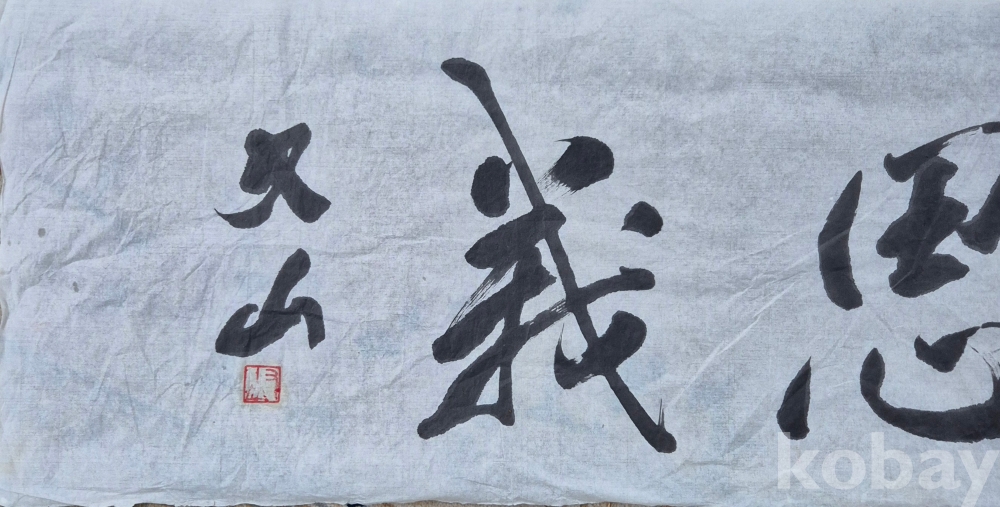 恩義
又山
kobay